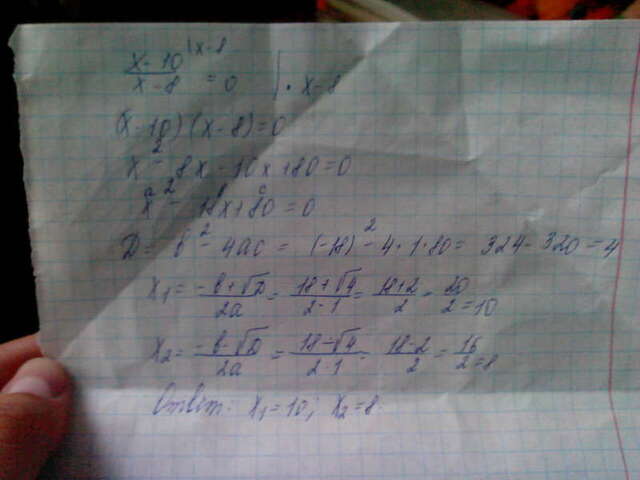 x-10 \x-8
x-8 = 0 | · x-8
(x-10)(x-8)=0
x² - 8x - 10x + 80 = 0
a b c
x² - 18x + 80 = 0
D = b² - 4ac = (-18)² - 4·1·80 = 324 - 320 = 4
x₁ = -b+√D / 2a = 18+√4 / 2·1 = 18+2 / 2 = 20 / 2 = 10
x₂ = -b-√D / 2a = 18-√4 / 2·1 = 18-2 / 2 = 16 / 2 = 8
Ответ: x₁=10; x₂=8.